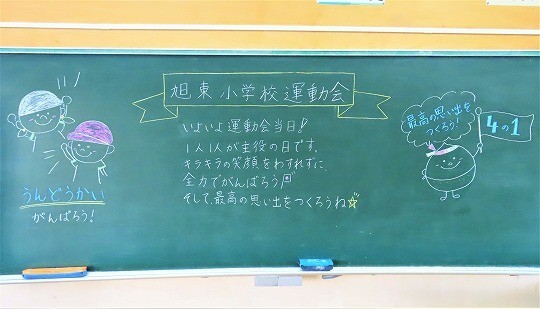 旭東小学校運動会
いよいよ運動会当日!!
1人1人が主役の日です。
キラキラの笑顔をわすれずに、
全力でがんばろう
そして、最高の思い出をつくろうね
うんどうかい
がんばろう!
最高の思い出を
つくろう!
4の1